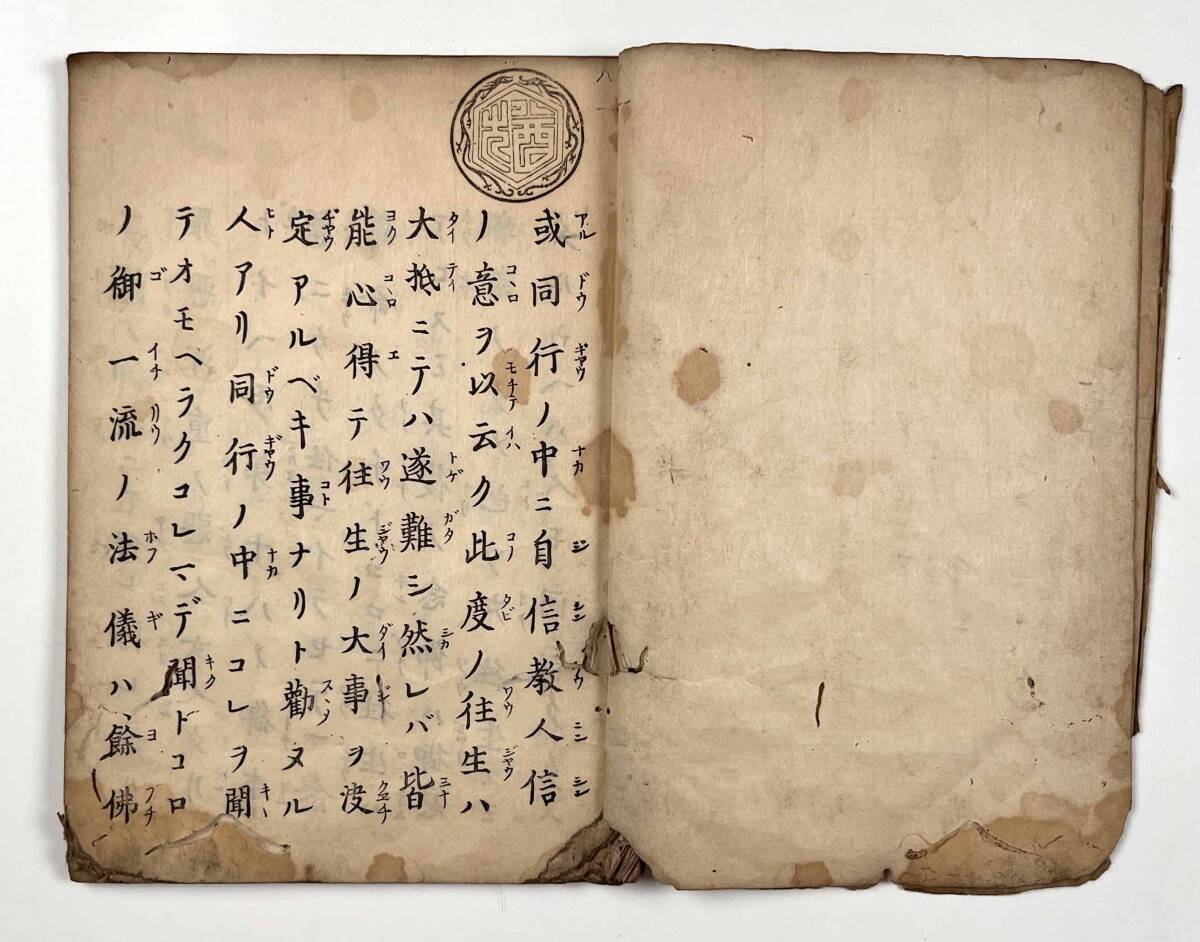 或同行ノ中ニ自信教人信
ノ意ヲ以云ク此度ノ往生ハ
大抵ニテハ遂難シ然レバ皆
能心得テ往生ノ大事ヲ决
定アルベキ事ナリト勸ヌル
人アリ同行ノ中ニコレヲ聞
テオモヘラクコレマデ聞トコロ
ノ御一流ノ法儀ハ、餘佛